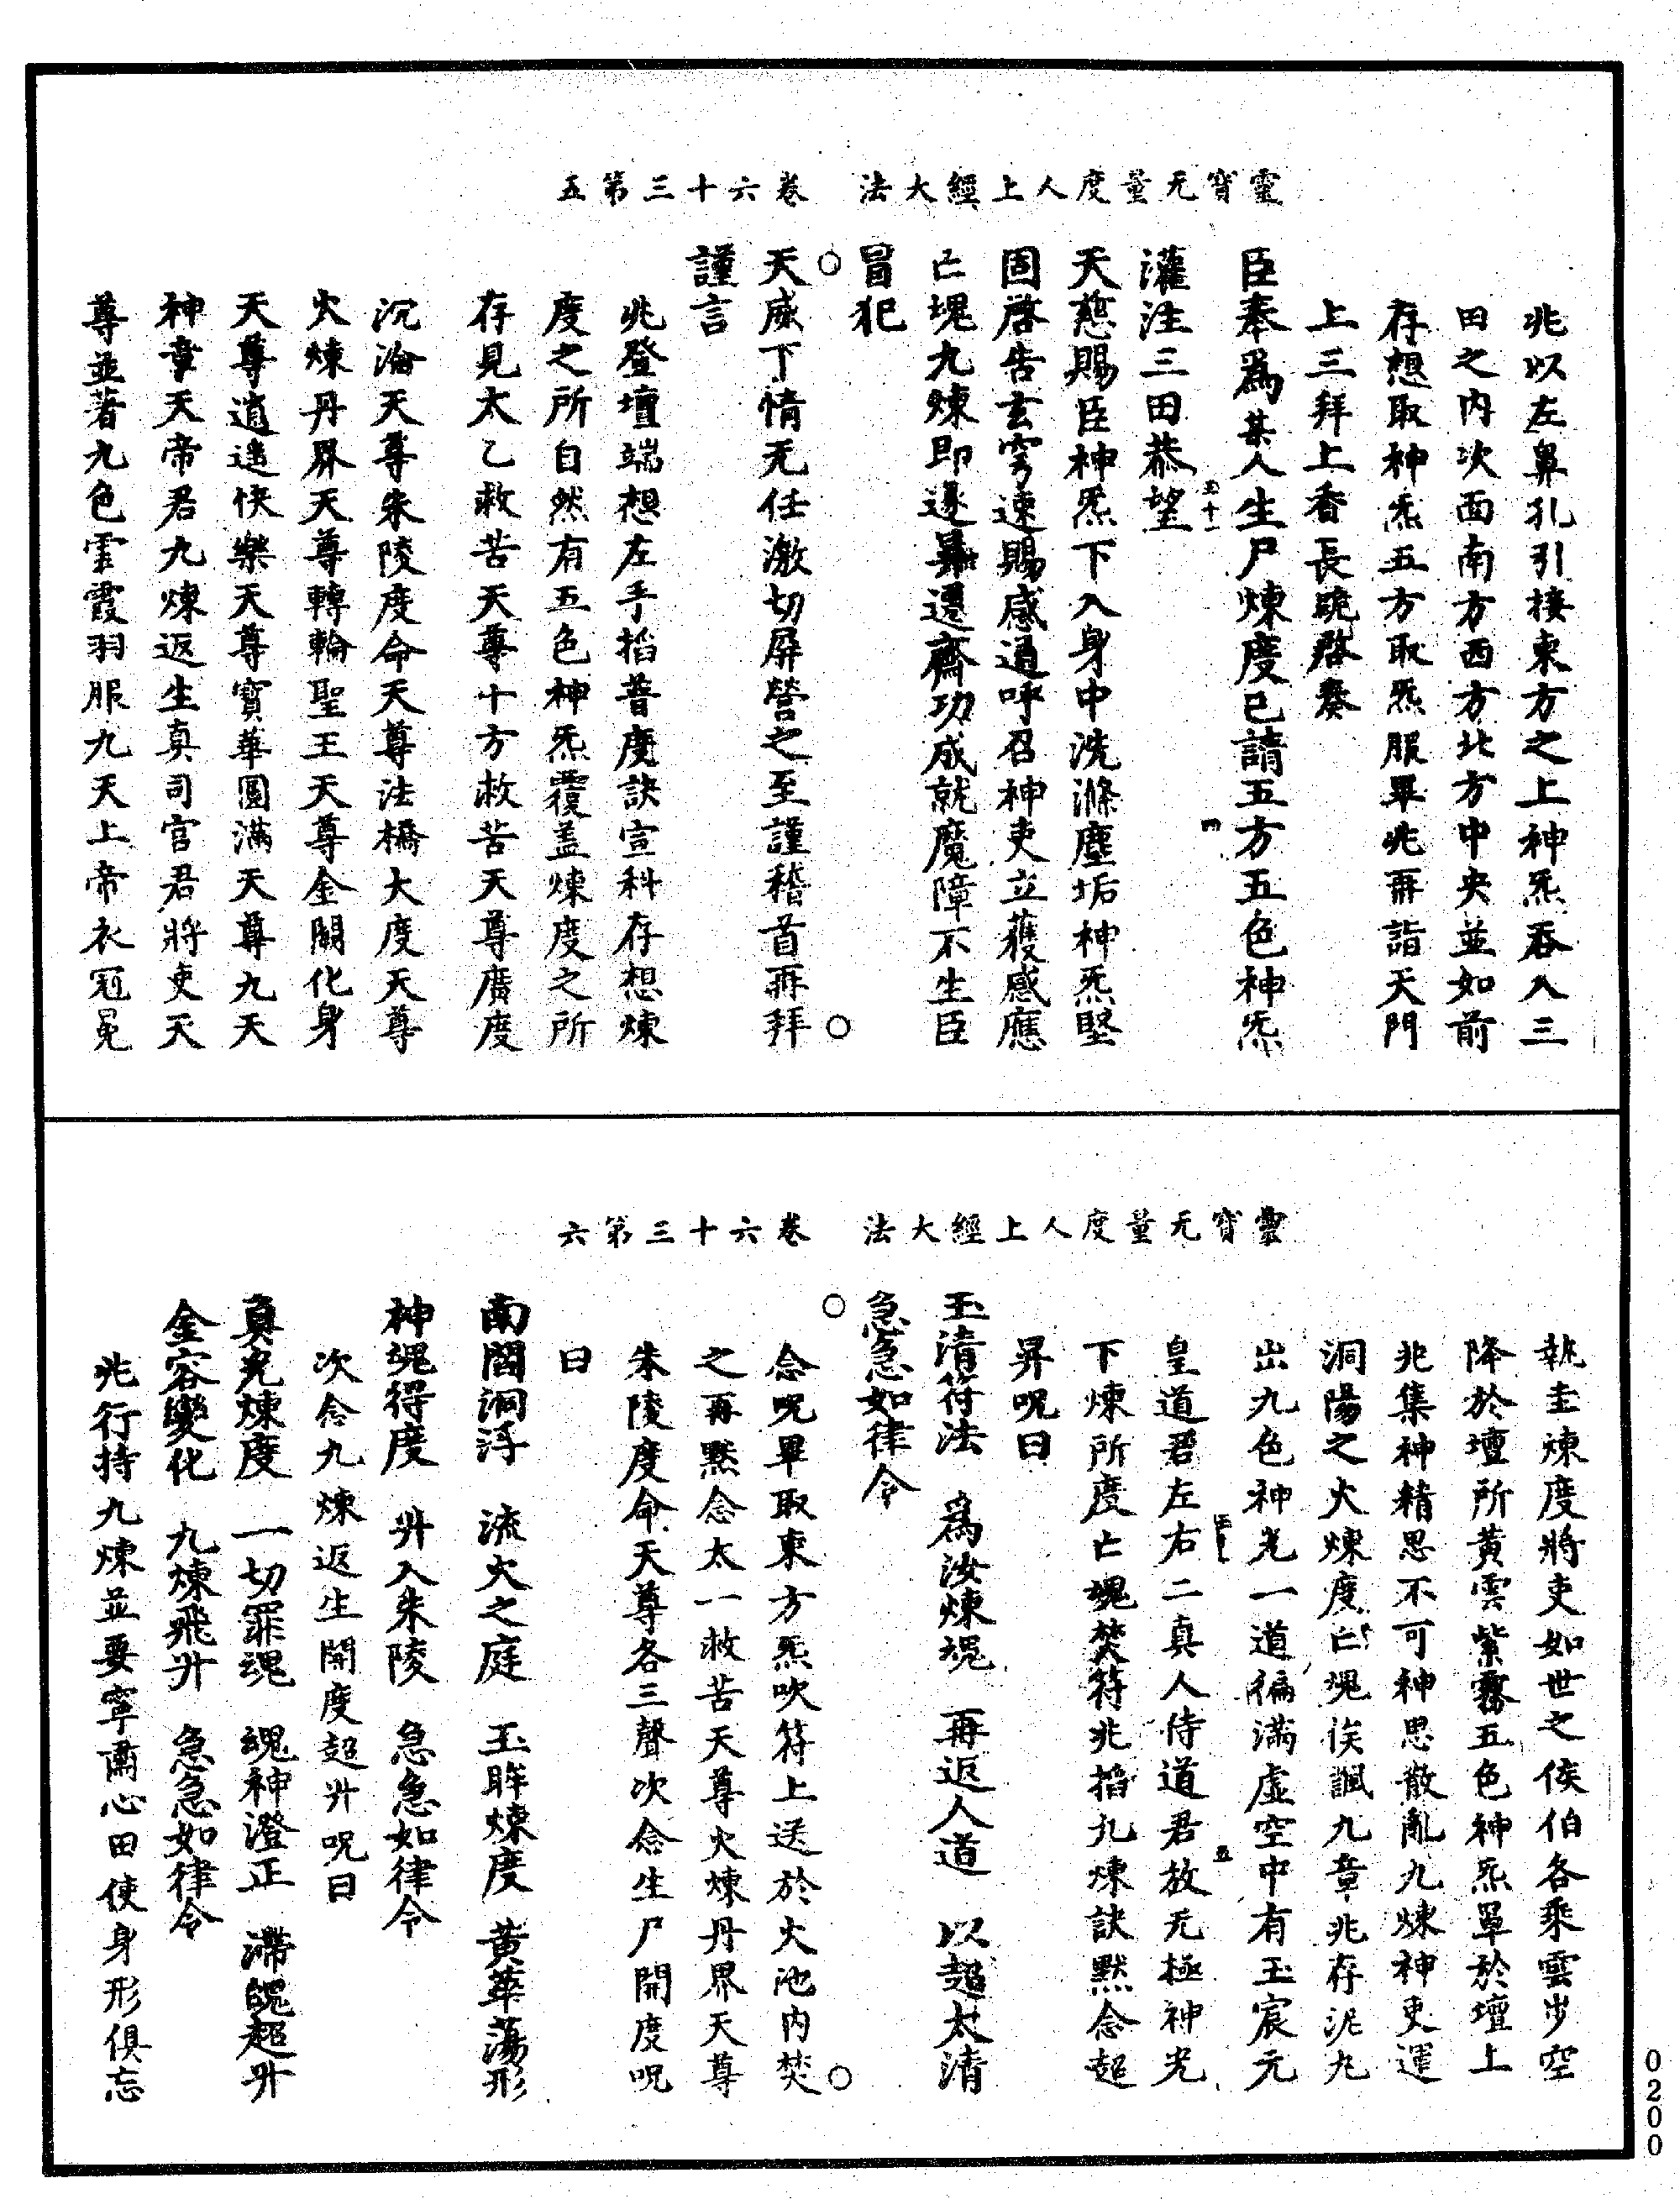 靈寶无量度人上經大法　卷六十三第五
兆以左鼻孔引接東方之上神炁吞入三
田之內次面南方西方北方中央並如前
存想取神炁五方取炁服畢兆再詣天門
上三拜上香長跪啓奏
臣奉爲某人生尸煉度已請五方五色神炁
灌注三田恭望
天慈賜臣神炁下入身中洗滌塵垢神炁堅
固啓告玄穹速賜感通呼召神吏立獲感應
亡魂九煉即遂昇遷齋功成就魔障不生臣
冒犯
天威下情无任激切屏營之至謹稽首再拜
謹言
兆登壇端想左手掐普度訣宣科存想煉
度之所自然有五色神炁覆盖煉度之所
存見太乙救苦天尊十方救苦天尊廣度
沉淪天尊朱陵度命天尊法橋大度天尊
火煉丹界天尊轉輪聖王天尊金闕化身
天尊逍遙快樂天尊寶華圓滿天尊九天
神章天帝君九煉返生真司官君將吏天
尊並著九色雲霞羽服九天上帝衣冠冕
靈寶无量度人上經大法　卷六十三第六
執圭煉度將吏如世之侯伯各乘雲步空
降於壇所黃雲紫霧五色神炁罩於壇上
兆集神精思不可神思散亂九煉神吏運
洞陽之火煉度亡魂俟諷九章兆存泥丸
出九色神光一道徧滿虛空中有玉宸元
皇道君左右二真人侍道君放无極神光
下煉所度亡魂焚符兆掐九煉訣默念超
昇呪曰
玉清符法　爲汝煉魂　再返人道　以超太清
急急如律令
念呪畢取東方炁吹符上送於火池內焚
之再默念太一救苦天尊火煉丹界天尊
朱陵度命天尊各三聲次念生尸開度呪
曰
南閻洞浮　流火之庭　玉眸煉度　黃華蕩形
神魂得度　升入朱陵　急急如律令
次念九煉返生開度超升呪曰
真光煉度　一切罪魂　魂神澄正　滯魄超升
金容變化　九煉飛升　急急如律令
兆行持九煉並要寧肅心田使身形俱忘
0200